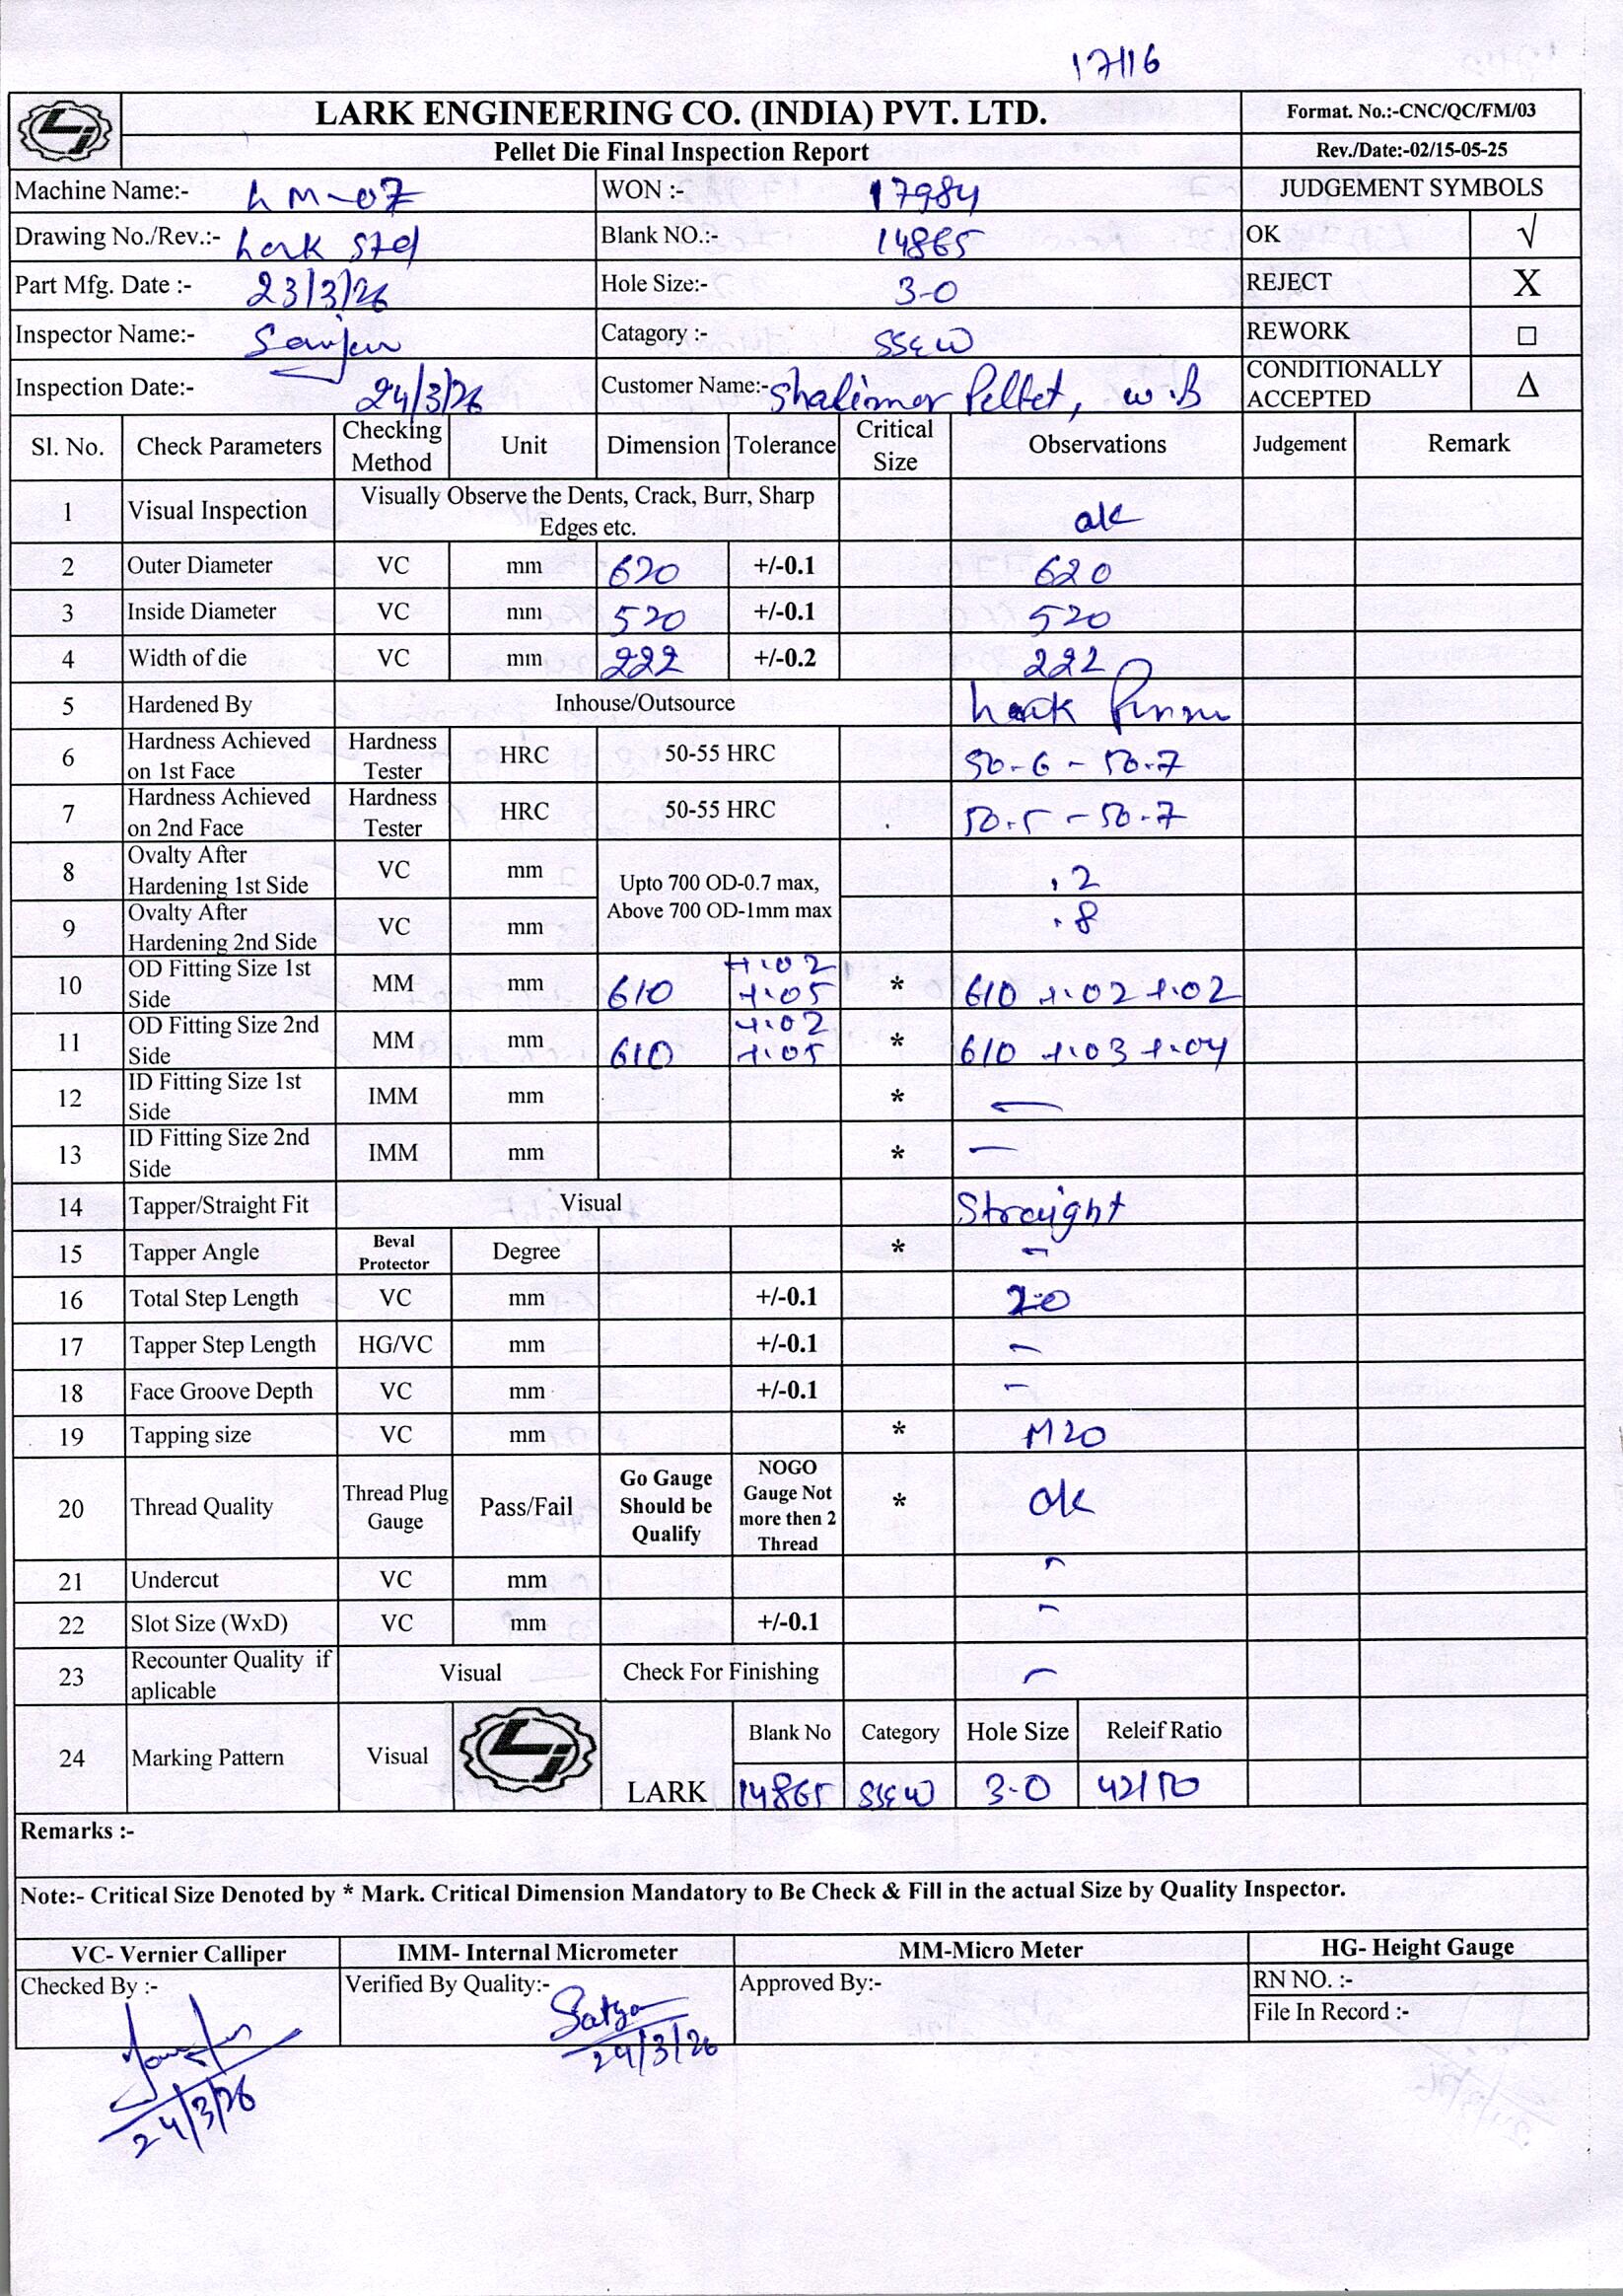 17116
LARK ENGINEERING CO. (INDIA) PVT. LTD.
Format. No.:-CNC/QC/FM/03
Pellet Die Final Inspection Report
Rev./Date:-02/15-05-25
Machine Name:- LM-07 WON :- 17984 JUDGEMENT SYMBOLS
Drawing No./Rev.:- Lark Std Blank NO.:- 14865 OK √
Part Mfg. Date :- 23/3/26 Hole Size:- 3.0 REJECT X
Inspector Name:- Catagory :- SS&W REWORK □
Inspection Date:- 24/3/26 Customer Name:- Shalimar Pellet, W.B CONDITIONALLY ACCEPTED Δ
Sl. No. Check Parameters Checking Method Unit Dimension Tolerance Critical Size Observations Judgement Remark
1 Visual Inspection Visually Observe the Dents, Crack, Burr, Sharp Edges etc. ok
2 Outer Diameter VC mm 620 +/-0.1 620
3 Inside Diameter VC mm 520 +/-0.1 520
4 Width of die VC mm 222 +/-0.2 222
5 Hardened By Inhouse/Outsource Lark
6 Hardness Achieved on 1st Face Hardness Tester HRC 50-55 HRC 50.6 - 50.7
7 Hardness Achieved on 2nd Face Hardness Tester HRC 50-55 HRC 50.5 - 50.7
8 Ovalty After Hardening 1st Side VC mm Upto 700 OD-0.7 max, Above 700 OD-1mm max .2
9 Ovalty After Hardening 2nd Side VC mm .8
10 OD Fitting Size 1st Side MM mm 610 +.02 +.05 * 610 +.02 +.02
11 OD Fitting Size 2nd Side MM mm 610 +.02 +.05 * 610 +.03 +.04
12 ID Fitting Size 1st Side IMM mm * -
13 ID Fitting Size 2nd Side IMM mm * -
14 Tapper/Straight Fit Visual Straight
15 Tapper Angle Beval Protector Degree * -
16 Total Step Length VC mm +/-0.1 20
17 Tapper Step Length HG/VC mm +/-0.1 -
18 Face Groove Depth VC mm +/-0.1 -
19 Tapping size VC mm * M20
20 Thread Quality Thread Plug Gauge Pass/Fail Go Gauge Should be Qualify NOGO Gauge Not more then 2 Thread * ok
21 Undercut VC mm -
22 Slot Size (WxD) VC mm +/-0.1 -
23 Recounter Quality if aplicable Visual Check For Finishing -
24 Marking Pattern Visual LARK Blank No Category Hole Size Releif Ratio
14865 SS&W 3.0 42/50
Remarks :-
Note:- Critical Size Denoted by * Mark. Critical Dimension Mandatory to Be Check & Fill in the actual Size by Quality Inspector.
VC- Vernier Calliper IMM- Internal Micrometer MM-Micro Meter HG- Height Gauge
Checked By :- Verified By Quality:- Satya Approved By:- RN NO. :-
24/3/26 File In Record :-
24/3/26